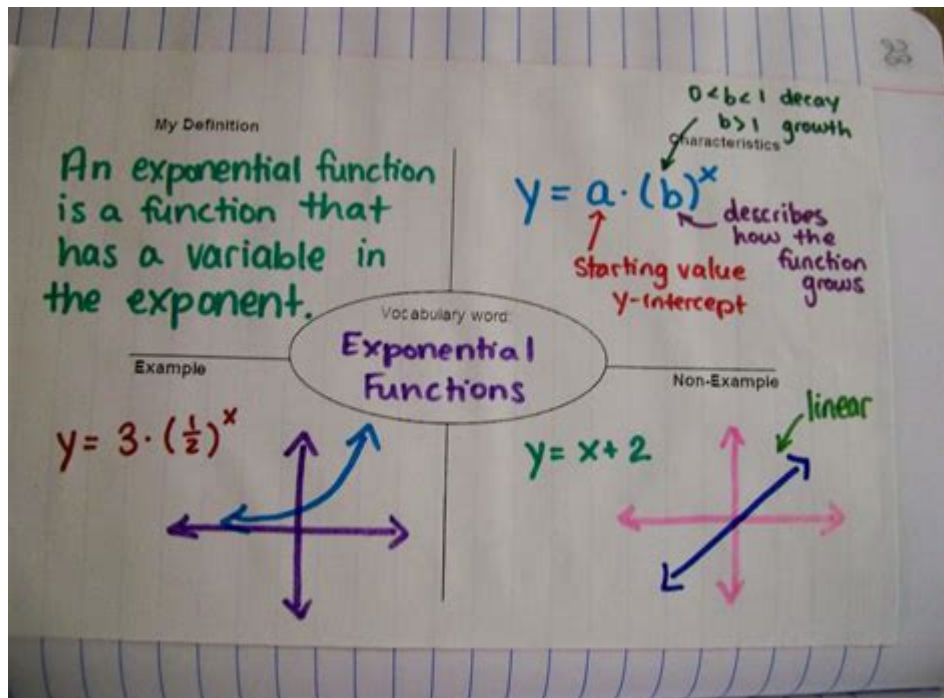 My Definition
An exponential function
is a function that
has a variable in
the exponent.
0 < b < 1 decay
b > 1 growth
Characteristics
y = a · (b)^x
describes
how the
function
grows
starting value
y-intercept
Vocabulary word:
Exponential
Functions
Example
y = 3 · (1/2)^x
Non-Example
linear
y = x + 2